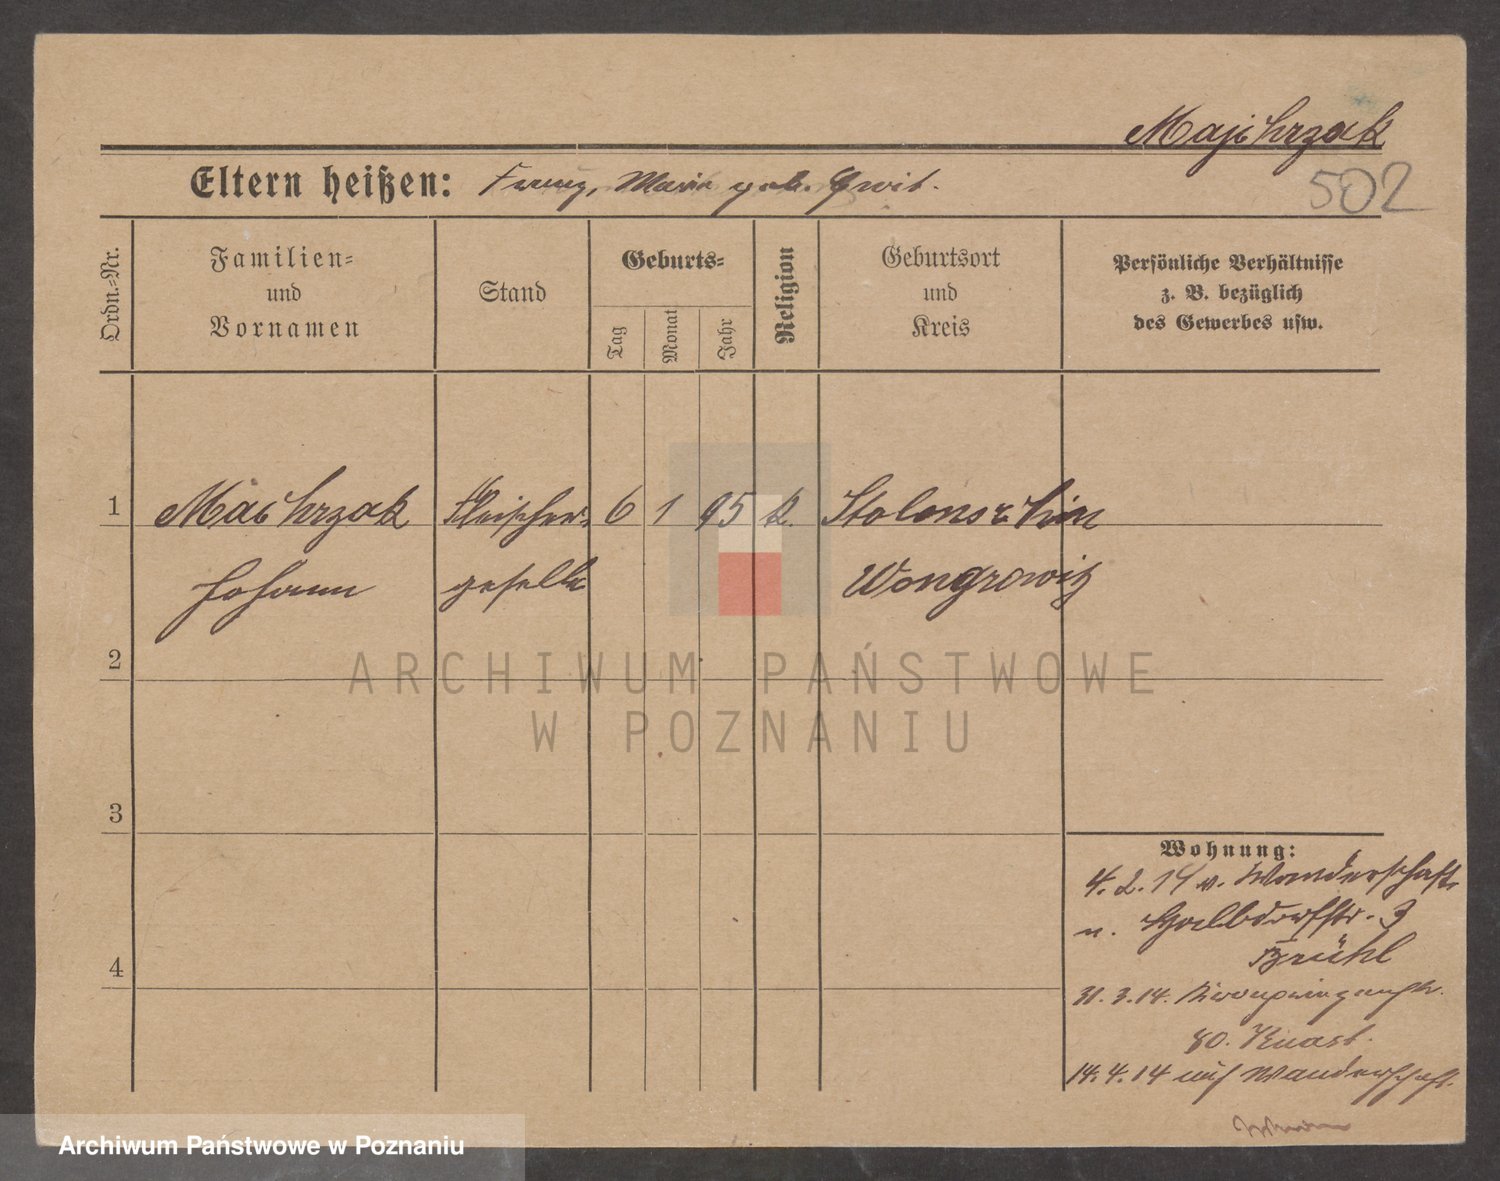 Majchrzak
502
Eltern heißen: Franz, Marie geb. Gwit.
Ordn.-Nr.
Familien-
und
Vornamen
Stand
Geburts-
Tag
Monat
Jahr
Religion
Geburtsort
und
Kreis
Persönliche Verhältnisse
z. B. bezüglich
des Gewerbes usw.
1 Majchrzak Fleischer- 6 1 95 k.
Johann geselle Wongrowitz
2
3
4
Wohnung:
4. 2. 14 v. Wanderschaft
n. 3
Brühl
31. 3. 14. Kronprinzenstr.
80.
14. 4. 14 auf Wanderschaft.
ARCHIWUM PAŃSTWOWE
W POZNANIU
Archiwum Państwowe w Poznaniu